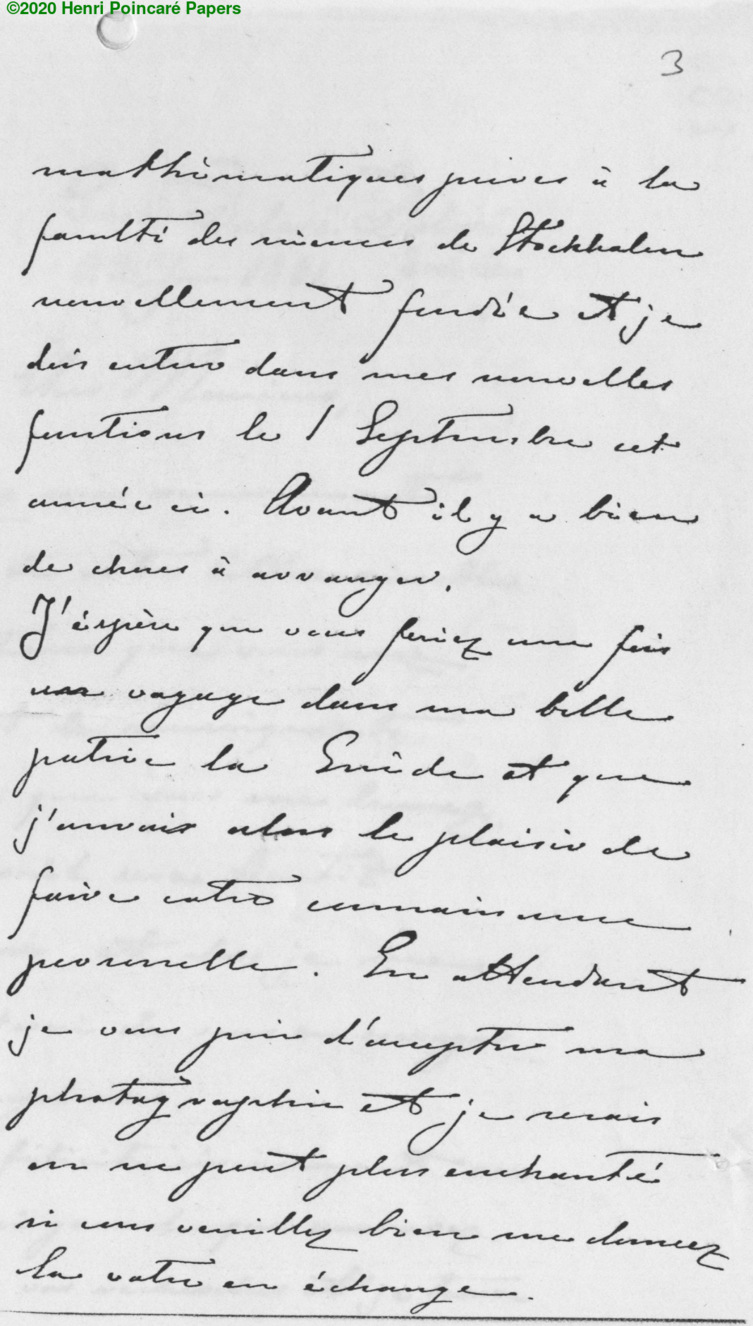 ©2020 Henri Poincaré Papers
3
mathématiques pures à la
faculté des sciences de Stockholm
nouvellement fondée et je
dois entrer dans mes nouvelles
fonctions le 1 Septembre cet
année ci. Avant il y a bien
de choses à arranger.
J'éspère que vous feriez une fois
voyage dans ma belle
patrie la Suède et que
j'aurais alors le plaisir de
faire votre connaissance
personelle. En attendant
je vous prie d'accepter ma
photographie et je serais
on ne peut plus enchanté
si vous veuillez bien me donner
la votre en échange.